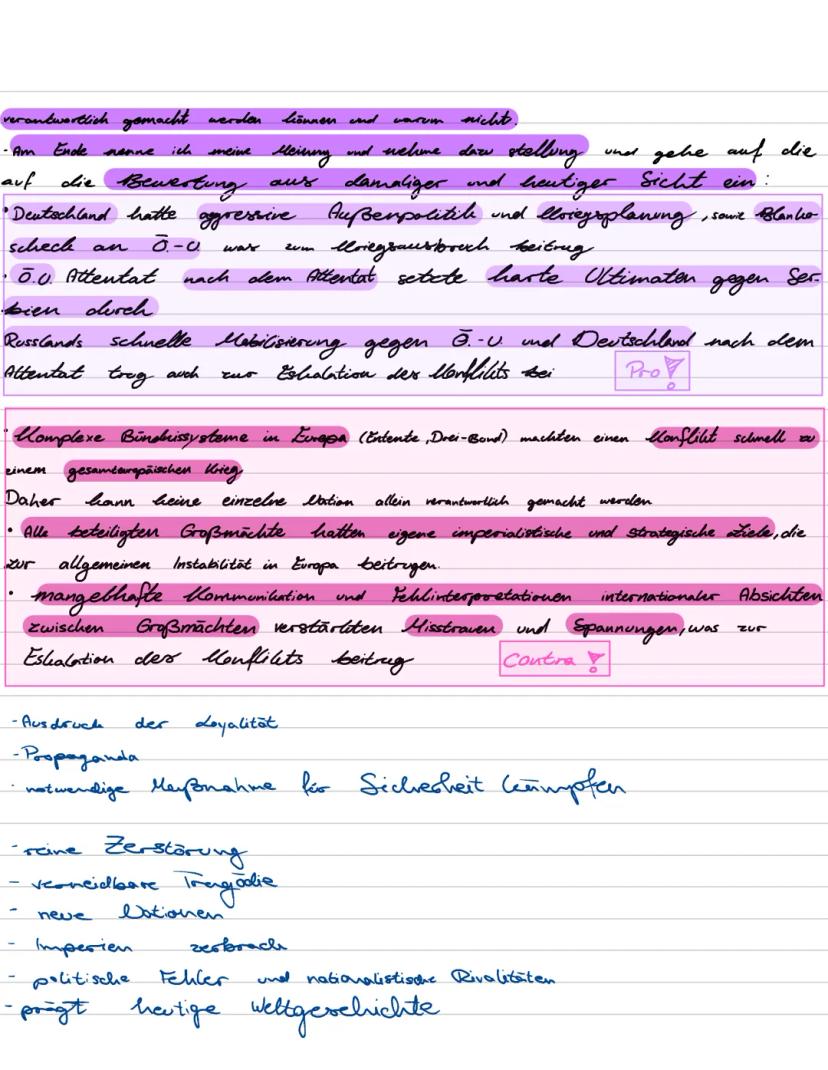 verantwortlich gemacht werden können und warum nicht.
- Am Ende nenne ich meine Meinung und nehme dazu stellung und gehe auf die
auf die Bewertung aus damaliger und heutiger Sicht ein:
• Deutschland hatte aggressive Außenpolitik und Kriegsplanung, sowie Blanko-
scheck an Ö.-U. was zum Kriegsausbruch beitrug
• Ö.U. Attentat nach dem Attentat setzte harte Ultimaten gegen Ser-
bien durch
Russlands schnelle Mobilisierung gegen Ö.-U. und Deutschland nach dem
Attentat trug auch zur Eskalation des Konflikts bei
Pro!
• Komplexe Bündnissysteme in Europa (Entente, Drei-Bund) machten einen Konflikt schnell zu
einem gesamteuropäischen Krieg
Daher kann keine einzelne Nation allein verantwortlich gemacht werden
• Alle beteiligten Großmächte hatten eigene imperialistische und strategische Ziele, die
zur allgemeinen Instabilität in Europa beitrugen.
• mangelhafte Kommunikation und Fehlinterpretationen internationaler Absichten
zwischen Großmächten verstärkten Misstrauen und Spannungen, was zur
Eskalation des Konflikts beitrug
Contra!
- Ausdruck der Loyalität
- Propaganda
- notwendige Maßnahme für Sicherheit kämpfen
- reine Zerstörung
- vermeidbare Tragödie
- neue Nationen
- Imperien zerbrach
- politische Fehler und nationalistische Rivalitäten
- prägt heutige Weltgeschichte